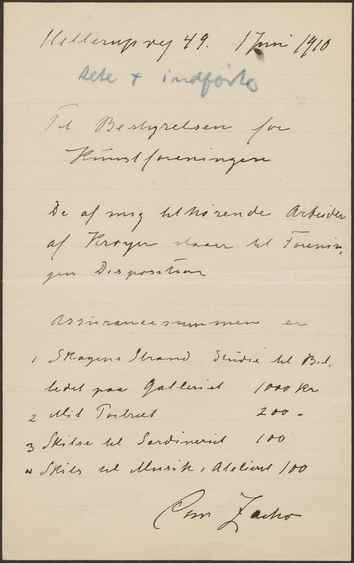 Hellerupvej 49. 1 Juni 1910
sete + indførte
Til Bestyrelsen for
Kunstforeningen
De af mig tilhørende Arbeider
af Krøyer staaer til Forenin-
gen Disposition
Assurancesummen er
1 Skagens Strand Studie til Bil-
ledet paa Galleriet 1000 Kr
2 Mit Portræt 200 -
3 Skitse til Sardineriet 100
4 Skits til Musik i Atelieret 100
Chr. Zacho